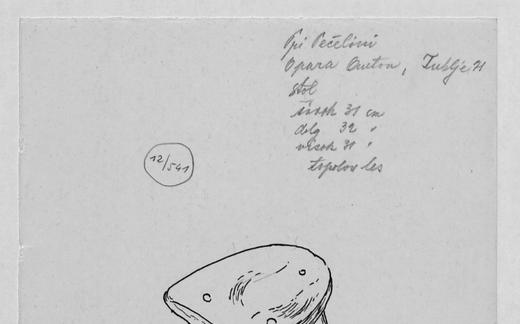 Pri Pečelini
Opara Anton, Tublje 21
stol
širok 31 cm
dolg 32 "
visok 31 "
topolov les
12/541